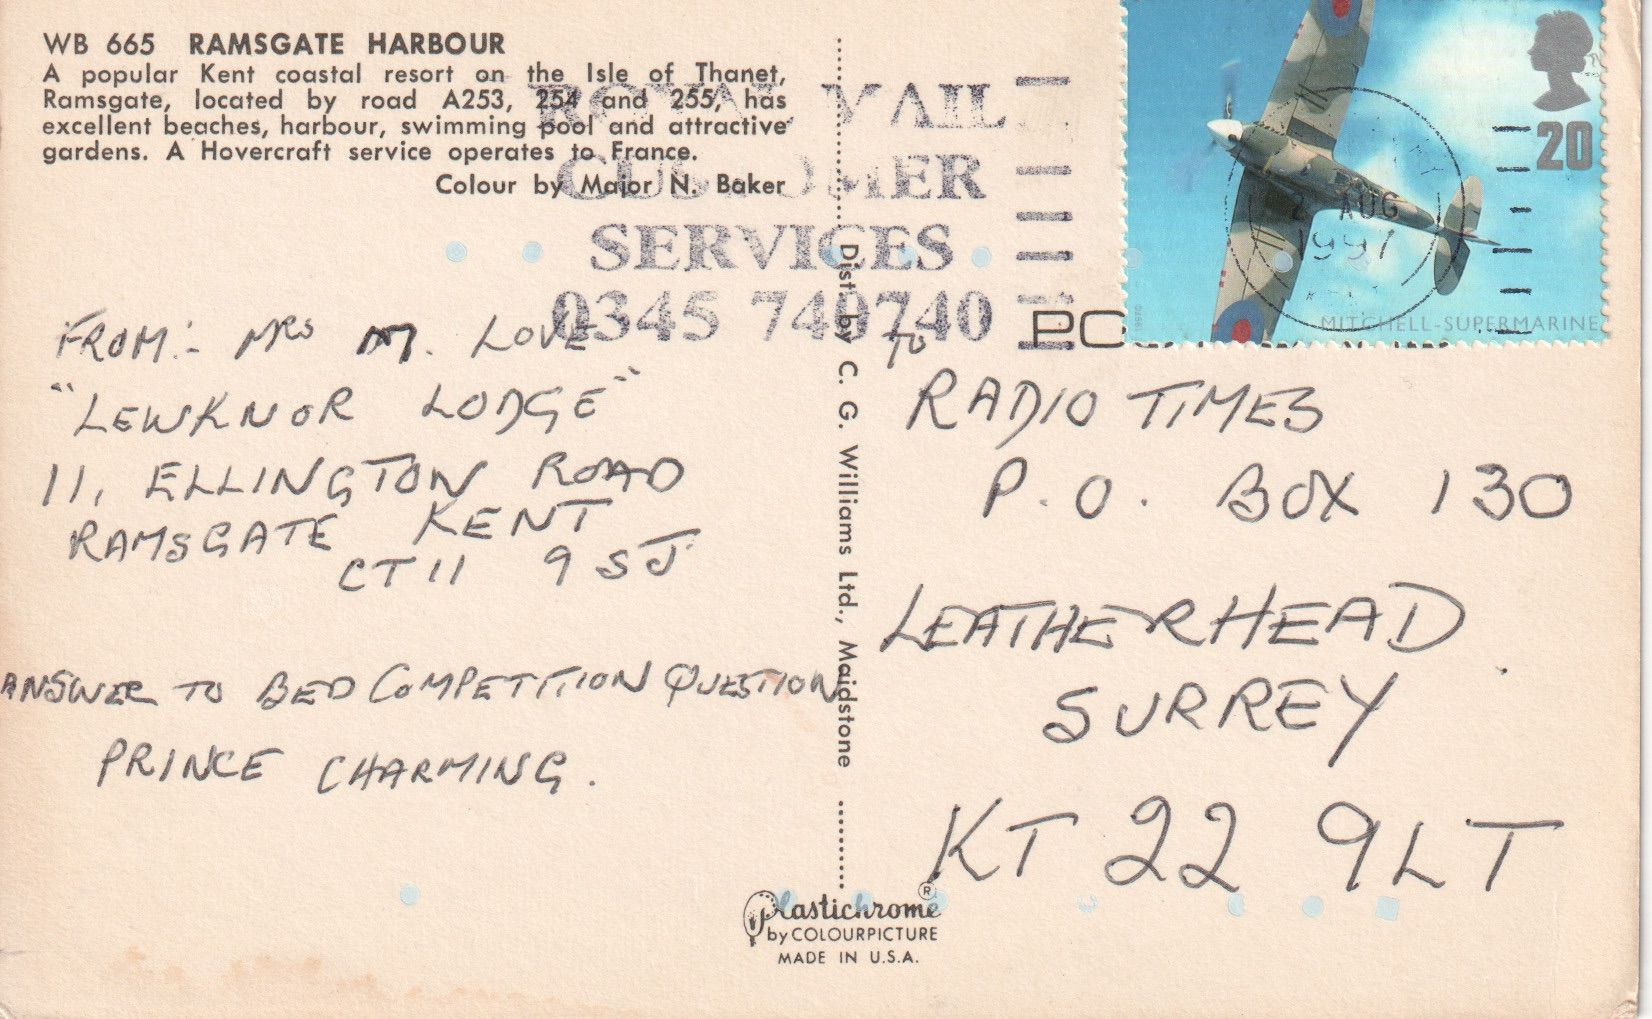 WB 665 RAMSGATE HARBOUR
A popular Kent coastal resort on the Isle of Thanet,
Ramsgate, located by road A253, 254 and 255, has
excellent beaches, harbour, swimming pool and attractive
gardens. A Hovercraft service operates to France.
Colour by Major N. Baker
ROYAL MAIL
CUSTOMER
SERVICES
0345 740740
20
2 AUG
1997
MITCHELL-SUPERMARINE
FROM:- MRS M. LOVE
"LEWKNOR LODGE"
11, ELLINGTON ROAD
RAMSGATE KENT
CT11 9SJ
ANSWER TO BED COMPETITION QUESTION
PRINCE CHARMING.
Dist. by C. G. Williams Ltd., Maidstone
TO
RADIO TIMES
P.O. BOX 130
LEATHERHEAD
SURREY
KT22 9LT
Plastichrome®
by COLOURPICTURE
MADE IN U.S.A.